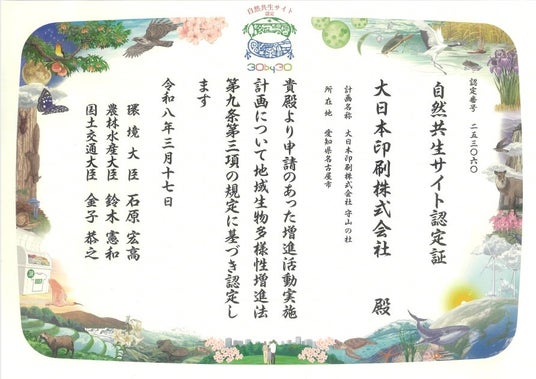 自然共生サイト
認定
30by30
認定番号 二五三〇六〇
自然共生サイト認定証
大日本印刷株式会社 殿
計画名称 大日本印刷株式会社 守山の杜
所在地 愛知県名古屋市
貴殿より申請のあった増進活動実施
計画について地域生物多様性増進法
第九条第三項の規定に基づき認定し
ます
令和八年三月十七日
環境大臣 石原 宏高
農林水産大臣 鈴木 憲和
国土交通大臣 金子 恭之